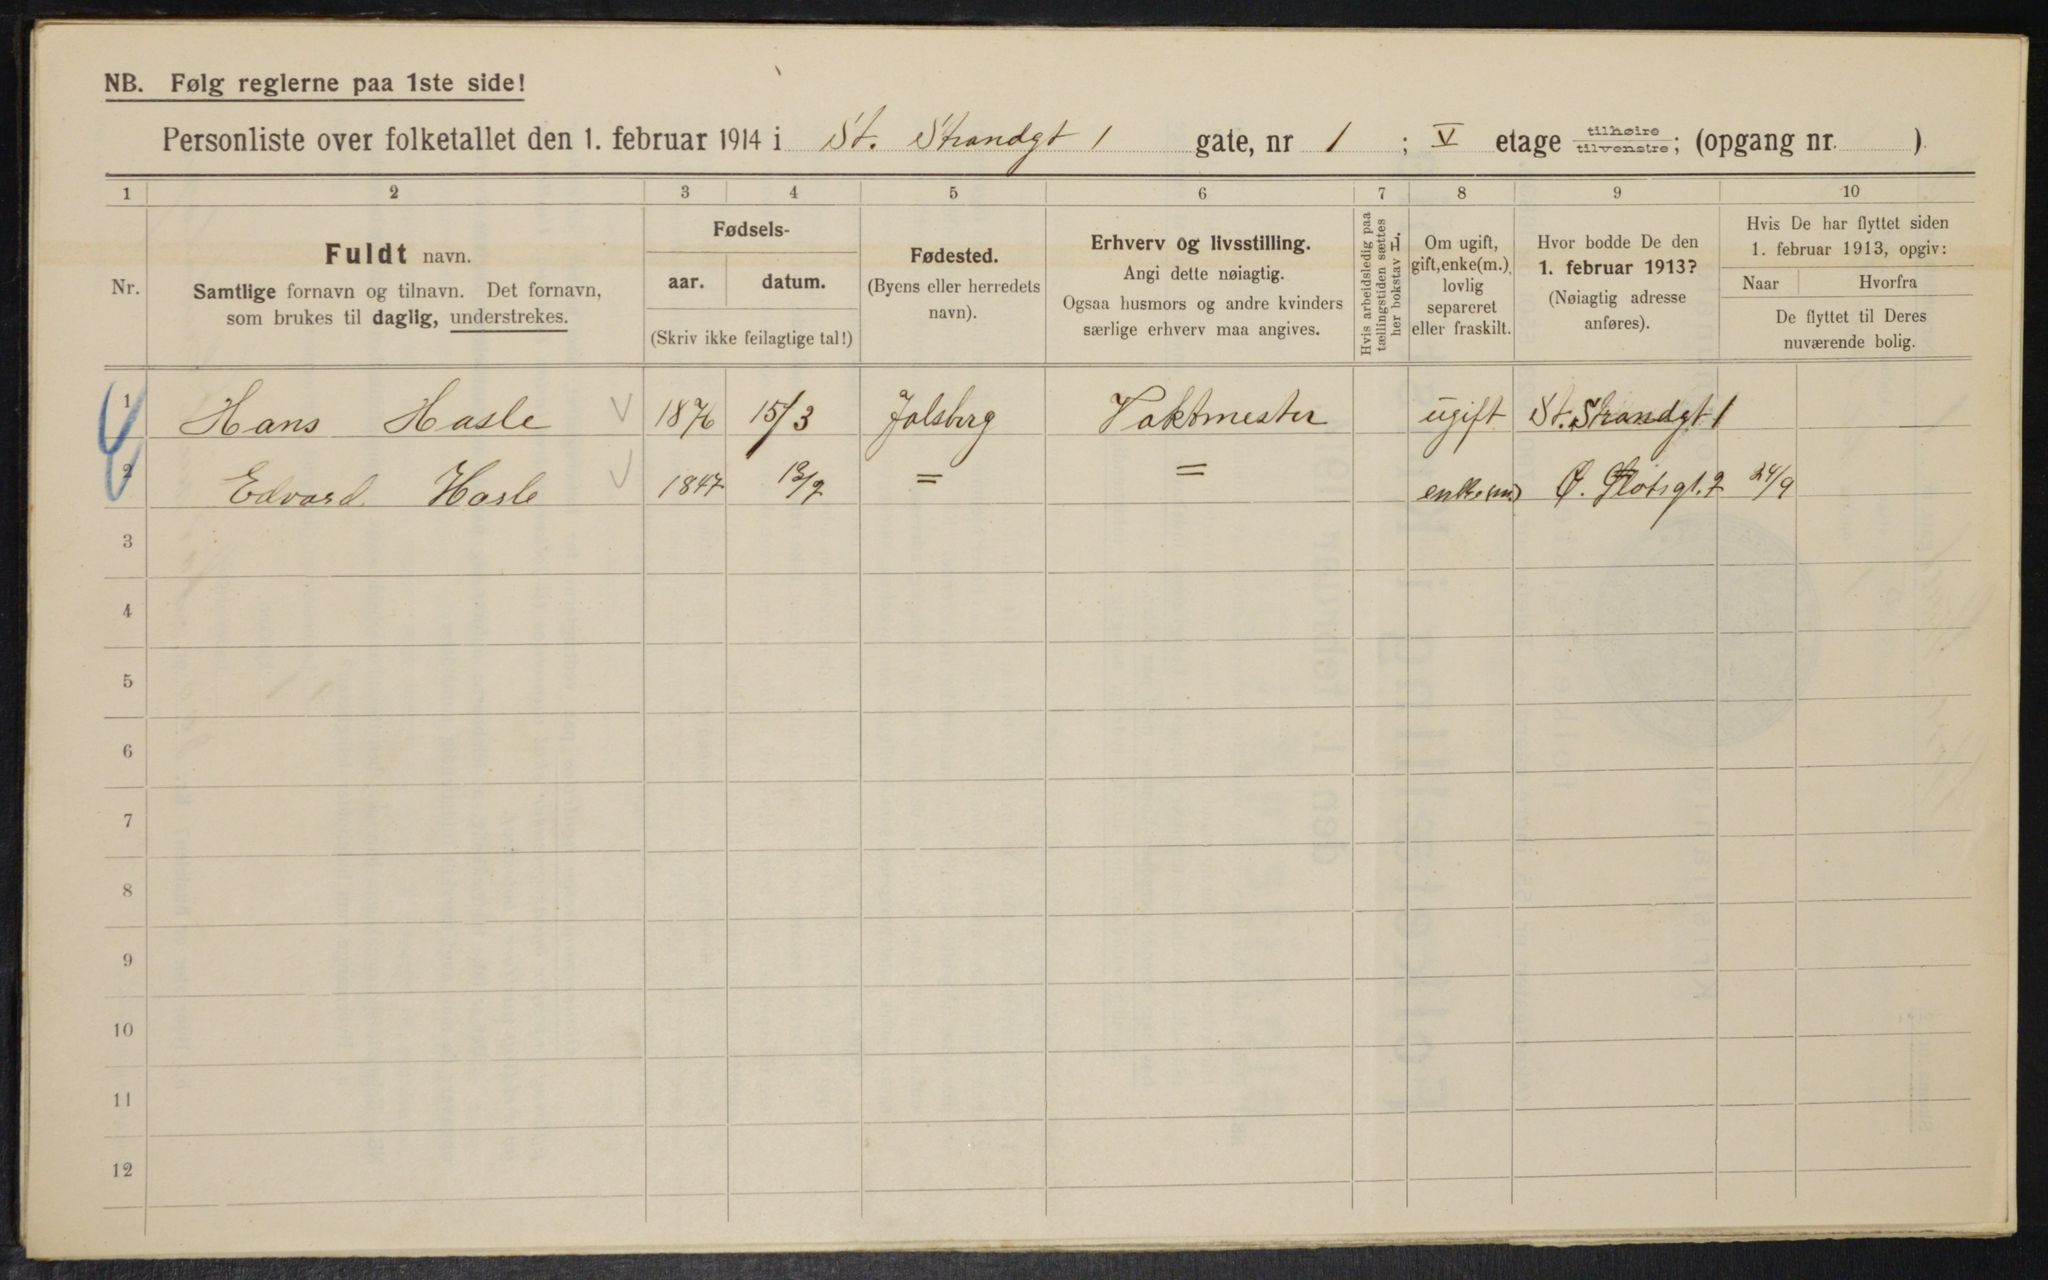 NB. Følg reglerne paa 1ste side!
Personliste over folketallet den 1. februar 1914 i St. Strandgt 1 gate, nr 1 ; V etage tilhøire tilvenstre; (opgang nr. )
1 2 3 4 5 6 7 8 9 10
Nr.
Fuldt navn.
Samtlige fornavn og tilnavn. Det fornavn,
som brukes til daglig, understrekes.
Fødsels-
aar. datum.
(Skriv ikke feilagtige tal!)
Fødested.
(Byens eller herredets
navn).
Erhverv og livsstilling.
Angi dette nøiagtig.
Ogsaa husmors og andre kvinders
særlige erhverv maa angives.
Hvis arbeidsledig paa
tællingstiden sættes
her bokstav L.
Om ugift,
gift, enke(m.),
lovlig
separeret
eller fraskilt.
Hvor bodde De den
1. februar 1913?
(Nøiagtig adresse
anføres).
Hvis De har flyttet siden
1. februar 1913, opgiv:
Naar Hvorfra
De flyttet til Deres
nuværende bolig.
1 Hans Hasle 1876 15/3 Jalsberg Vaktmester ugift St. Strandgt 1
2 Edvard Hasle 1847 = = enke(m.) Ø. Slotsgt. 2 24/9
3
4
5
6
7
8
9
10
11
12